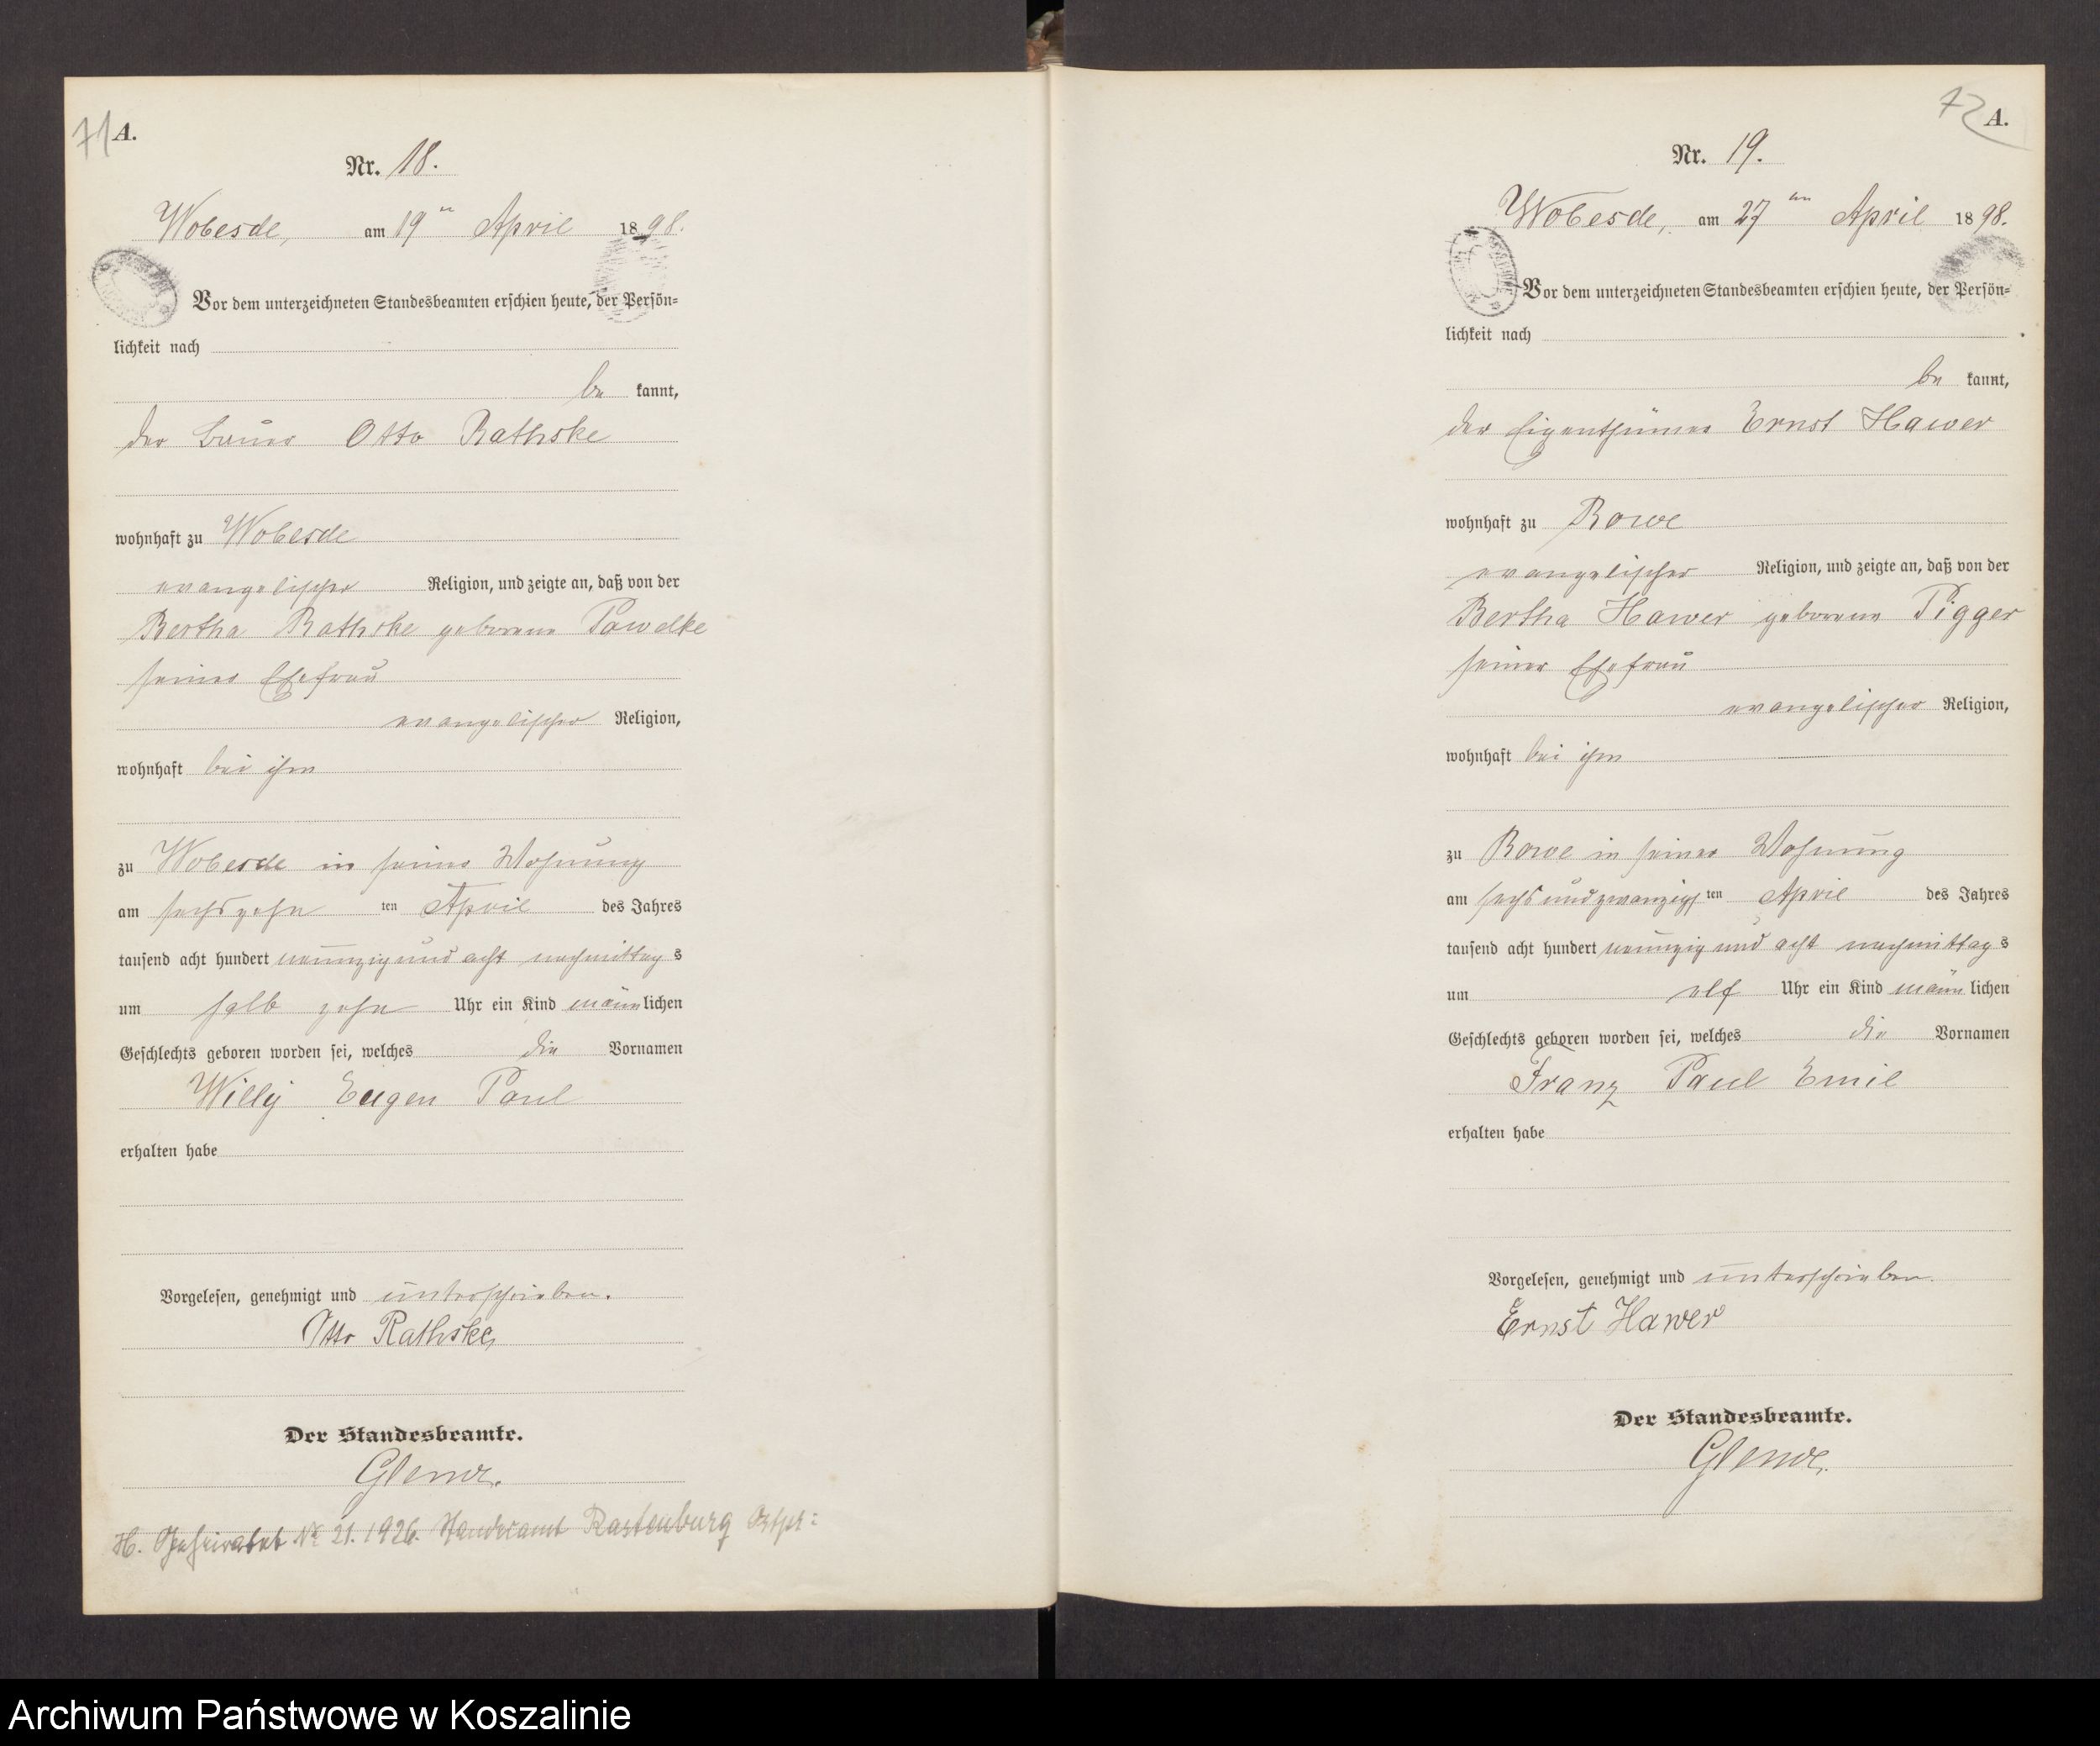 71
A.
Nr. 18.
Wobesde, am 19ten April 1898.
Vor dem unterzeichneten Standesbeamten erschien heute, der Persön=
lichkeit nach
be kannt,
der Bauer Otto Rathske
wohnhaft zu Wobesde
evangelischer Religion, und zeigte an, daß von der
Bertha Rathske geborene Pawelke
seiner Ehefrau
evangelischer Religion,
wohnhaft bei ihm
zu Wobesde in seiner Wohnung
am sechszehn ten April des Jahres
tausend acht hundert neunzig und acht nachmittag s
um halb zehn Uhr ein Kind männlichen
Geschlechts geboren worden sei, welches die Vornamen
Willy Eugen Paul
erhalten habe
Vorgelesen, genehmigt und unterschrieben.
Otto Rathske
Der Standesbeamte.
H. Geheiratet No 21. 1926. Standesamt Rastenburg Ostpr:
72
A.
Nr. 19.
Wobesde, am 27ten April 1898.
Vor dem unterzeichneten Standesbeamten erschien heute, der Persön=
lichkeit nach
be kannt,
der Eigenthümer Ernst Hawer
wohnhaft zu Rowe
evangelischer Religion, und zeigte an, daß von der
Bertha Hawer geborene Pigger
seiner Ehefrau
evangelischer Religion,
wohnhaft bei ihm
zu Rowe in seiner Wohnung
am sechsundzwanzigs ten April des Jahres
tausend acht hundert neunzig und acht nachmittag s
um elf Uhr ein Kind männlichen
Geschlechts geboren worden sei, welches die Vornamen
Franz Paul Emil
erhalten habe
Vorgelesen, genehmigt und unterschrieben.
Ernst Hawer
Der Standesbeamte.
Archiwum Państwowe w Koszalinie